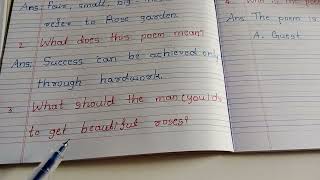 Ans: Four, small, big
refer to Rose garden.
2. What does this poem mean?
Ans: Success can be achieved only
through hardwork.
3. What should the man (you) do
to get beautiful roses?
Ans: The poem is
A. Guest